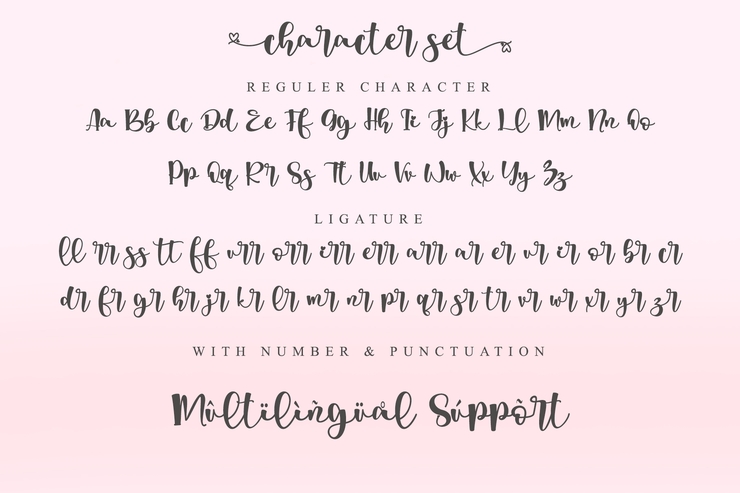 character set
REGULER CHARACTER
Aa Bb Cc Dd Ee Ff Gg Hh Ii Jj Kk Ll Mm Nn Oo
Pp Qq Rr Ss Tt Uu Vv Ww Xx Yy Zz
LIGATURE
ll rr ss tt ff urr orr irr err arr ar er ur ir or br cr
dr fr gr hr jr kr lr mr nr pr qr sr tr vr wr xr yr zr
WITH NUMBER & PUNCTUATION
Mûltïlìñgüål Súppòrt